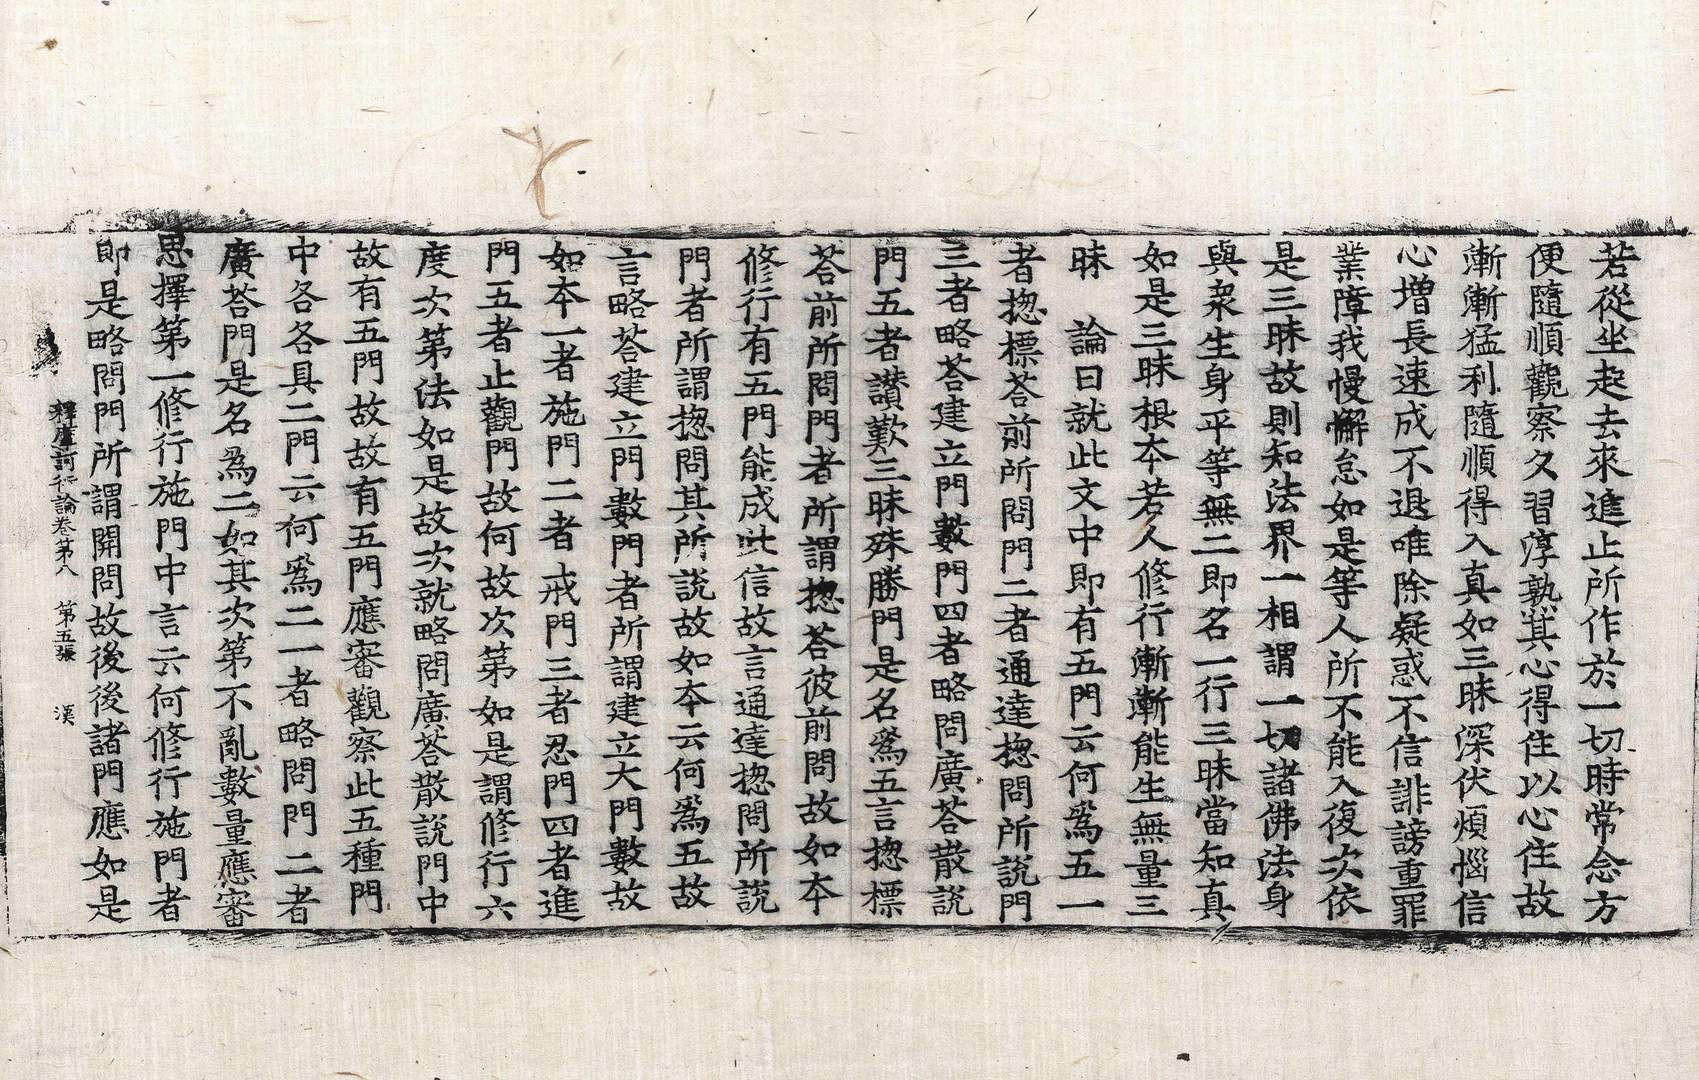 若從坐起去來進止所作於一切時常念方
便隨順觀察久習淳熟其心得住以心住故
漸漸猛利隨順得入真如三昧深伏煩惱信
心增長速成不退唯除疑惑不信誹謗重罪
業障我慢懈怠如是等人所不能入復次依
是三昧故則知法界一相謂一切諸佛法身
與衆生身平等無二即名一行三昧當知真
如是三昧根夲若人修行漸漸能生無量三
昧　論曰就此文中即有五門云何爲五一
者揔標荅前所問門二者通達揔問所說門
三者略荅建立門數門四者略問廣荅散說
門五者讃歎三昧殊勝門是名爲五言揔標
荅前所問門者所謂揔荅彼前問故如夲
修行有五門能成此信故言通達揔問所說
門者所謂揔問其所說故如夲云何爲五故
言略荅建立門數門者所謂建立大門數故
如夲一者施門二者戒門三者忍門四者進
門五者止觀門故何故次第如是謂修行六
度次第法如是故次就略問廣荅散說門中
故有五門故故有五門應審觀察此五種門
中各各具二門云何爲二一者略問門二者
廣荅門是名爲二如其次第不亂數量應審
思擇第一修行施門中言云何修行施門者
即是略問門所謂開問故後後諸門應如是
釋摩訶衍論卷第八　第五張　漢